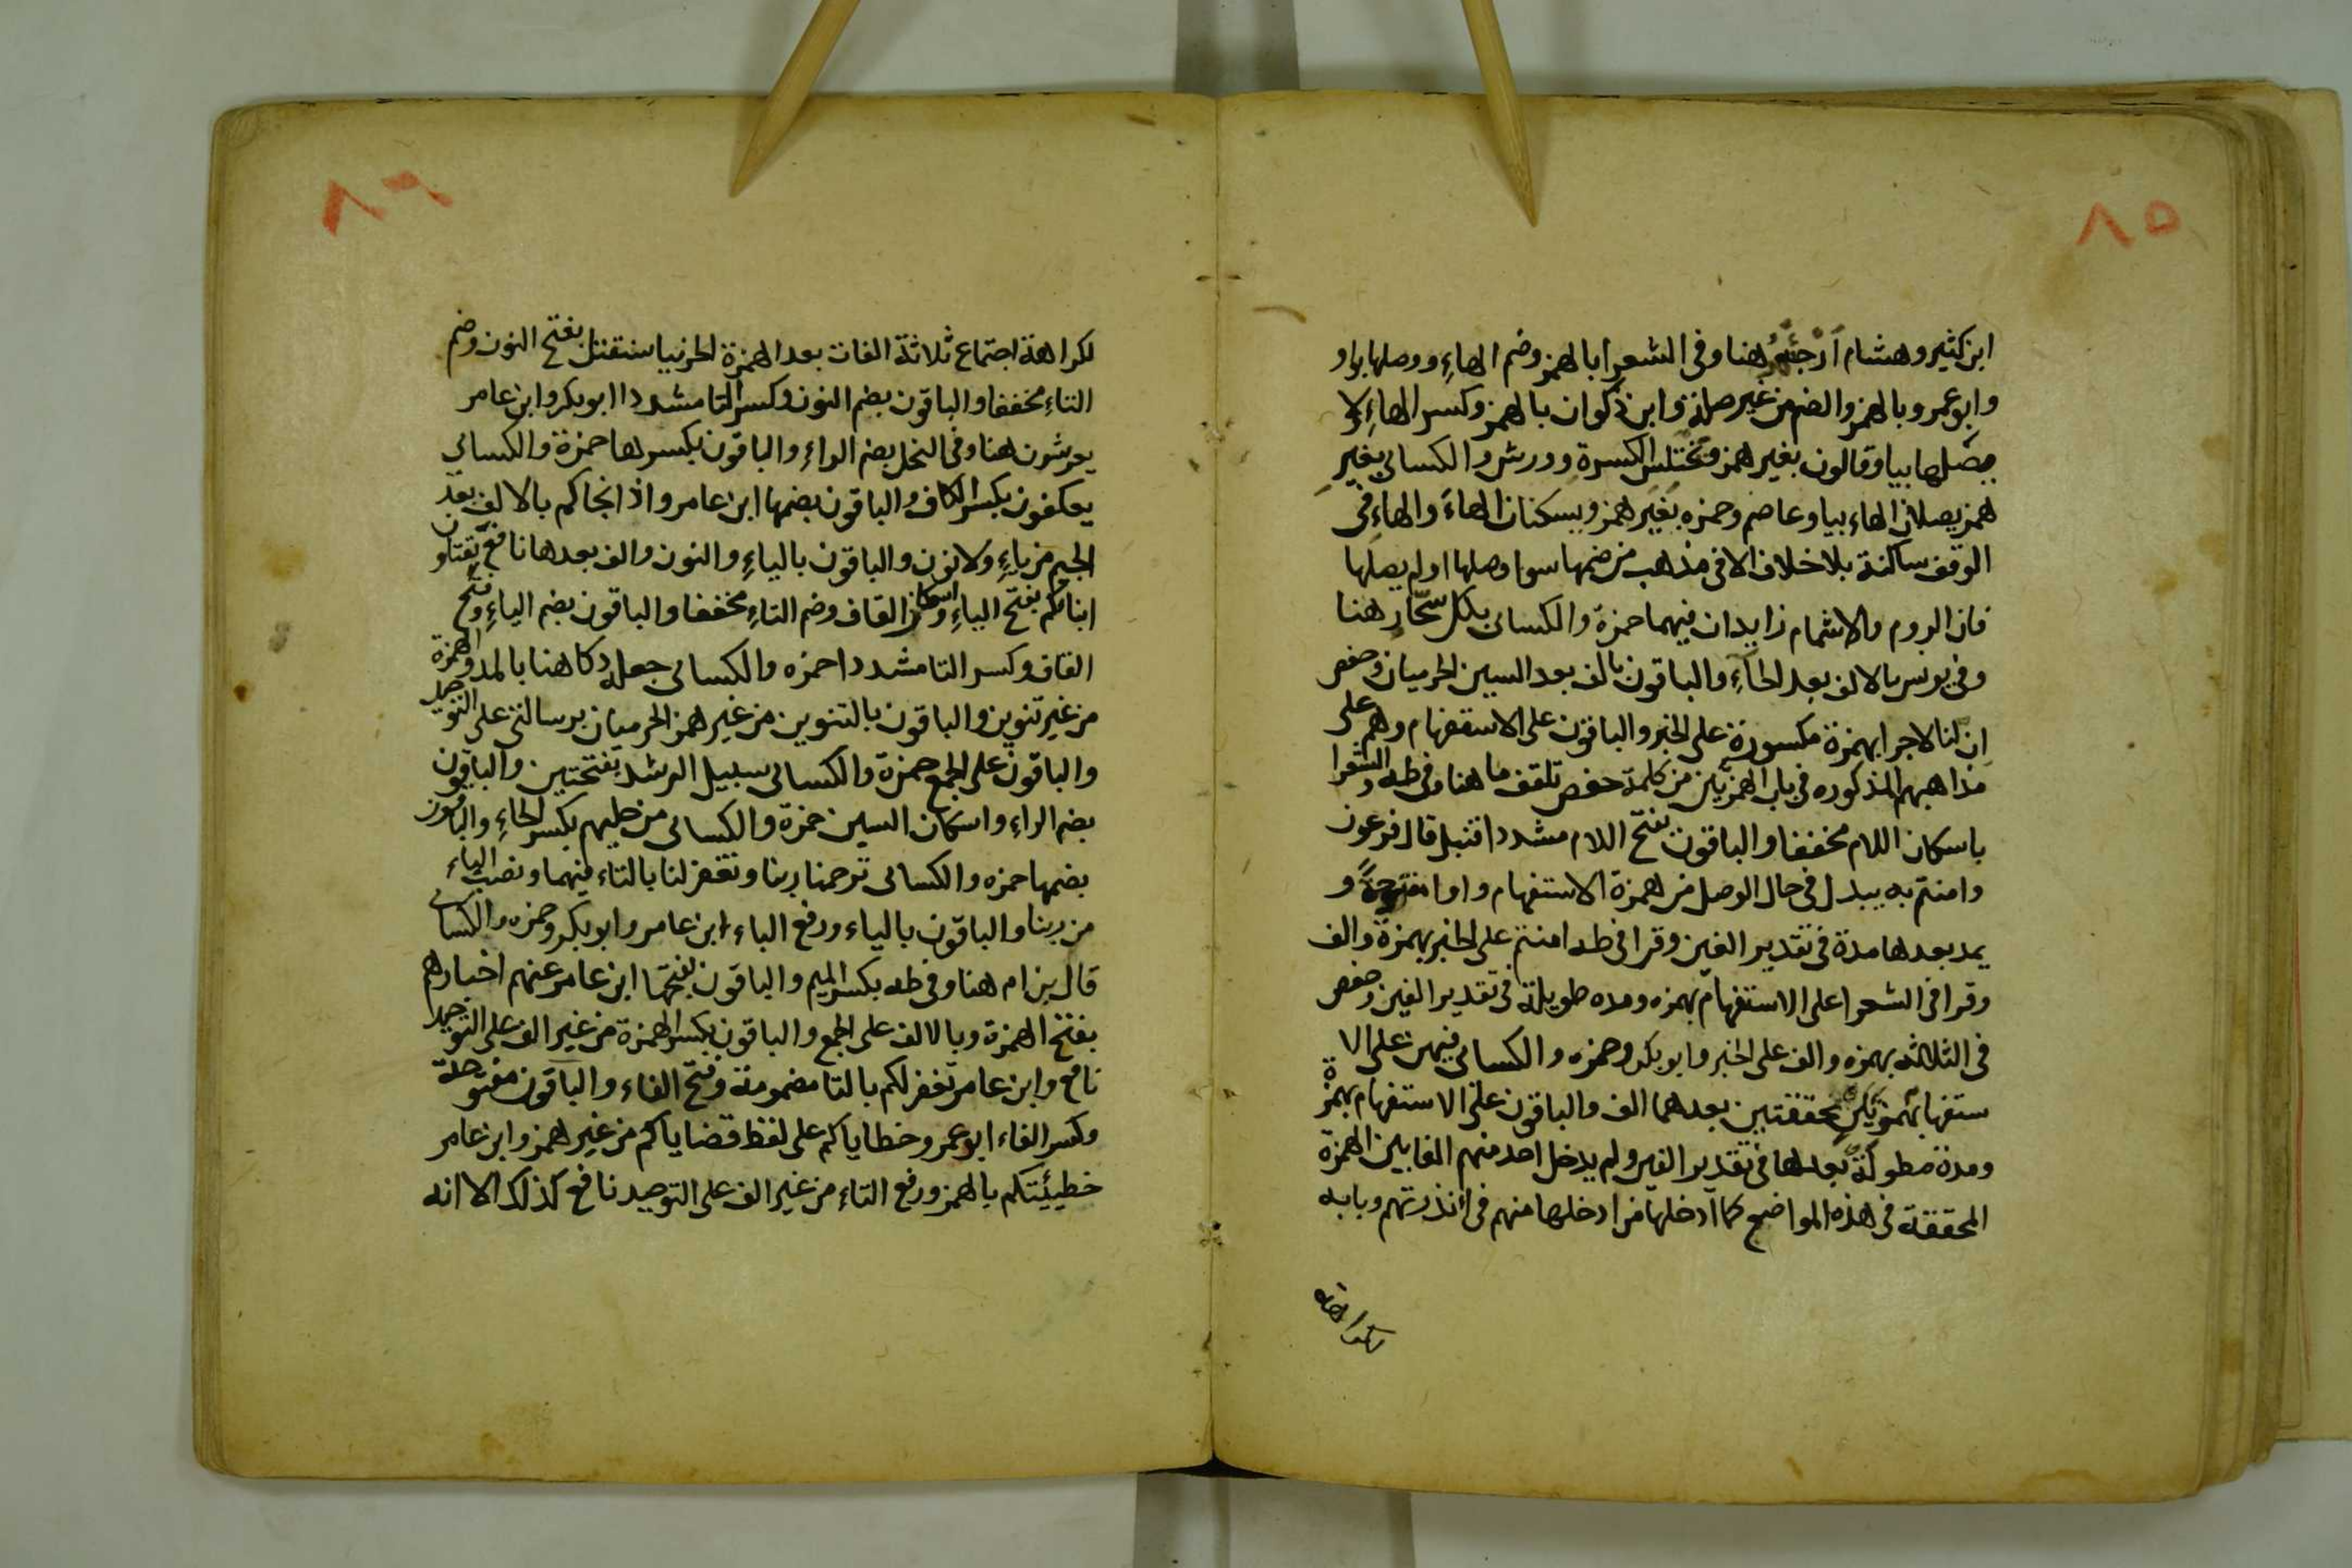 ٨٥
ابن كثير وهشام ارجئهُ هنا وفى الشعرا بالهمز وضم الهاءِ ووصلها بواو
وابو عمرو بالهمز والضم من غير صلة وابن ذكوان بالهمز وكسر الهاءِ ولا
يصلها بيا وقالون بغير همز ويختلس الكسرة وورش والكسائى بغير
همز يصلان الهاء بيا وعاصم وحمزه بغير همز ويسكنان الهاءَ والهاءِ فى
الوقف ساكنة بلا خلاف الا فى مذهب من ضمها سوا وصلها او لم يصلها
فان الروم والاشمام زايدان فيهما حمزة والكسائى بكل سحّار هنا
وفى يونس بالالف بعد الحآءِ والباقون بالف بعد السين الحرميان وحفص
اِن لنا لاجرا بهمزة مكسورة على الخبر والباقون على الاستفهام وهم على
مذاهبهم المذكوره فى باب الهمزتين من كلمة حفص تلقف ما هنا وفى طه والشعرا
باسكان اللام مخففا والباقون بفتح اللام مشددا قنبل قال فرعون
وامنتم به يبدل فى حال الوصل من همزة الاستفهام واوا مفتوحةً و
يمد بعدها مدة فى تقدير الفين وقرا فى طه امنتم على الخبر بهمزة والف
وقرا فى الشعرا على الاستفهام بهمزه ومده طويلة فى تقدير الفين وحفص
فى الثلاثه بهمزه والف على الخبر وابو بكر وحمزه والكسائى فيهن على الا
ستفهام بهمزتين محققتين بعدهما الف والباقون على الاستفهام بهمزة
ومدة مطولةً بعدها فى تقدير الفين ولم يدخل احد منهم الفا بين الهمزة
المحققة فى هذه المواضع كما ادخلها من ادخلها منهم فى أنذرتهم وبابه
لكراهة
٨٦
لكراهة اجتماع ثلاثة الفات بعد الهمزة الحرميا سنقتل بفتح النون وضم
التاءِ مخففا والباقون بضم النون وكسر التا مشددا ابو بكر وابن عامر
يعرشون هنا وفى النحل بضم الراءِ والباقون بكسرها حمزة والكسائى
يعكفون بكسر الكاف والباقون بضمها ابن عامر واذ انجاكم بالالف بعد
الجيم من ياءِ ولا نون والباقون بالياءِ والنون والف بعدها نافع يقتلون
ابناكم بفتح الياءِ واسكان القاف وضم التاءِ مخففا والباقون بضم الياءِ وفتح
القاف وكسر التا مشددا حمزه والكسائى جعله دكا هنا بالمد والهمزة
من غير تنوين والباقون بالتنوين من غير همز الحرميان برسالتى على التوحيد
والباقون على الجمع حمزة والكسائى سبيل الرشد بفتحتين والباقون
بضم الراءِ واسكان السين حمزة والكسائى من حليهم بكسر الحاءِ والباقون
بضمها حمزه والكسائى ترحمنا ربنا وتغفر لنا بالتاء فيهما ونصب الباء
من ربنا والباقون بالياء ورفع الباء ابن عامر وابو بكر وحمزه والكسائى
قال بن ام هنا وفى طه بكسر الميم والباقون بفتحها ابن عامر عنهم اخبارهم
بفتح الهمزة وبالالف على الجمع والباقون بكسر الهمزة من غير الف على التوحيد
نافع وابن عامر تغفر لكم بالتا مضمومة وفتح الفاء والباقون مفتوحة
وكسر الفاء ابو عمرو خطاياكم على لفظ قضاياكم من غير همز وابن عامر
خطيئتكم بالهمز ورفع التاء من غير الف على التوحيد نافع كذلك الا انه